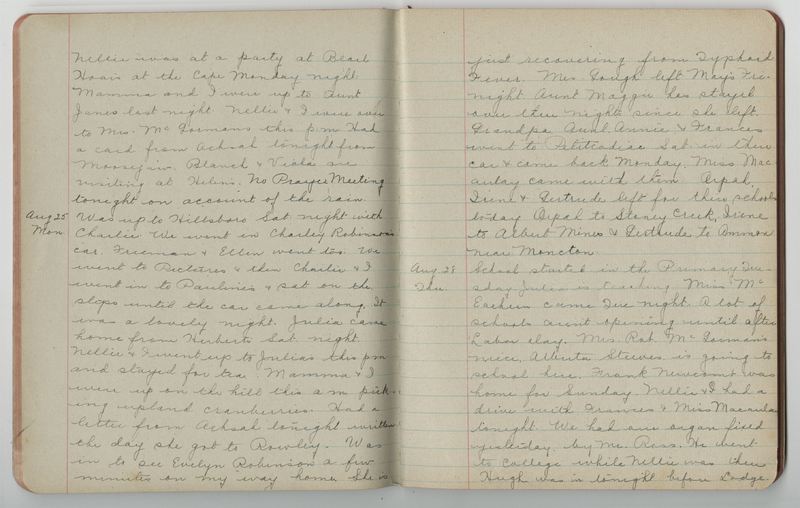 Nellie was at a party at Pearl
Hoars at the Cape Monday night
Mamma and I were up to Aunt
Janes last night. Nellie & I were over
to Mrs. Mc Gormans this p.m. Had
a card from Achsah tonight from
Moosejaw. Blanch & Viola are
visiting at Helens. No Prayer Meeting
tonight on account of the rain.
Aug 25 Was up to Hillsboro Sat. night with
Mon. Charlie. We went in Charley Robinson's
car. Freeman & Ellen went too. We
went to Pictures & then Charlie & I
went in to Paulines & sat on the
steps until the car came along. It
was a lovely night. Julia came
home from Herberts Sat. night.
Nellie & I went up to Julias this pm
and stayed for tea. Mamma & I
were up on the hill this a m pick-
ing upland cranberries. Had a
letter from Achsah tonight written
the day she got to Rowley. Was
in to see Evelyn Robinson a few
minutes on my way home. She is
just recovering from Typhoid
Fever. Mrs. Gough left May's Fri.
night Aunt Maggie has stayed
over three nights since she left.
Grandpa, Aunt Annie & Frances
went to Petitcodiac Sat in their
car & came back Monday. Miss Mac-
aulay came with them. Orpah,
Irene & Gertrude left for their schools
to-day Orpah to Stoney Creek, Irene
to Albert Mines & Gertrude to Ammon
near Moncton.
Aug. 28 School started in the Primary Tue-
Thu. sday. Julia is teaching. Miss Mc
Eachern came Tue night. A lot of
schools arent opening until after
Labor day. Mrs. Rob. Mc Gorman's
niece, Alberta Steeves is going to
school here. Frank Newcomb was
home for Sunday. Nellie & I had a
drive with Frances & Miss Macaulay
tonight. We had our organ fixed
yesterday by Mr. Ross. He went
to college while Nellie was there
Hugh was in tonight before Lodge.